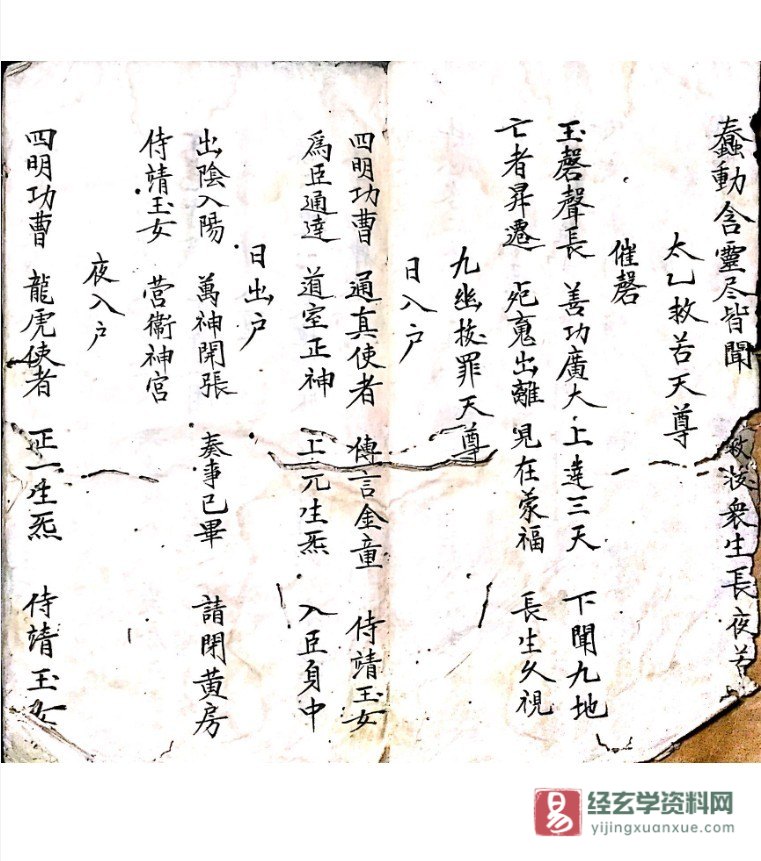 蠢動含靈尽皆聞 救沒衆生長夜苦
太乙救苦天尊
催磬
玉磬聲長 善功廣大 上達三天 下聞九地
亡者昇遷 兎鬼出離 見在蒙福 長生久視
九幽拔罪天尊
日入户
四明功曹 通真使者 傳言金童 侍靖玉女
爲臣通達 道室正神 上元生炁 入臣身中
日出户
出陰入陽 萬神開張 奏事已畢 請閉黄房
侍靖玉女 營衛神宫
夜入户
四明功曹 龍虎使者 正一生炁 侍靖玉女
经玄学资料网
yijingxuanxue.com